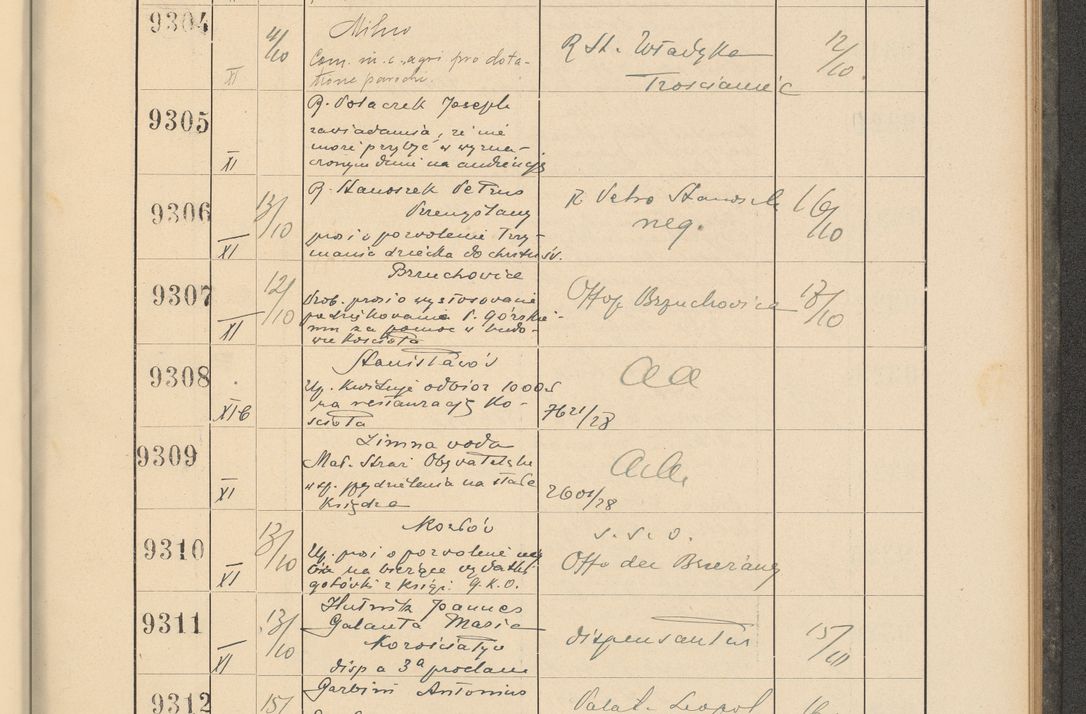 9304
XI
11/10
Milno
Com. m. c. agri pro dota-
tione parochi.
R St. Władyka
Trościaniec
12/10
9305
XI
R. Polaczek Joseph
zawiadamia, że nie
może przybyć w wyzna-
czonym dniu na audiencję
9306
XI
13/10
R. Stanoszek Petrus
Przemyślany
prosi o pozwolenie trzy-
mania dziecka do chrztu św.
R Petro
neg.
16/10
9307
XI
12/10
Brzuchowice
Prob. prosi o wystosowanie
podziękowania P. Górskie-
mu za pomoc w budo-
wie kościoła
Offo Brzuchowice
13/10
9308
XI b
Stanisławów
Up. kwituje odbiór 1000
na restaurację ko-
ścioła
aa
7621/28
9309
XI
Zimna woda
Mał. Straż Obywatelska
w sp. przydzielenia na stałe
księdza
aa
2601/28
9310
XI
13/10
Kozłów
Up. prosi o pozwolenie
na bieżące wydatki
gotówki z księgi G.K.O.
s. s. o.
Offo dec Brzeżany
9311
XI
13/10
Hutnik Joannes
Galanta Maria
Korościatyn
disp a 3ª proclam
dispensantur
15/10
9312
15/
Garbini Antonius
Palat. Leopol